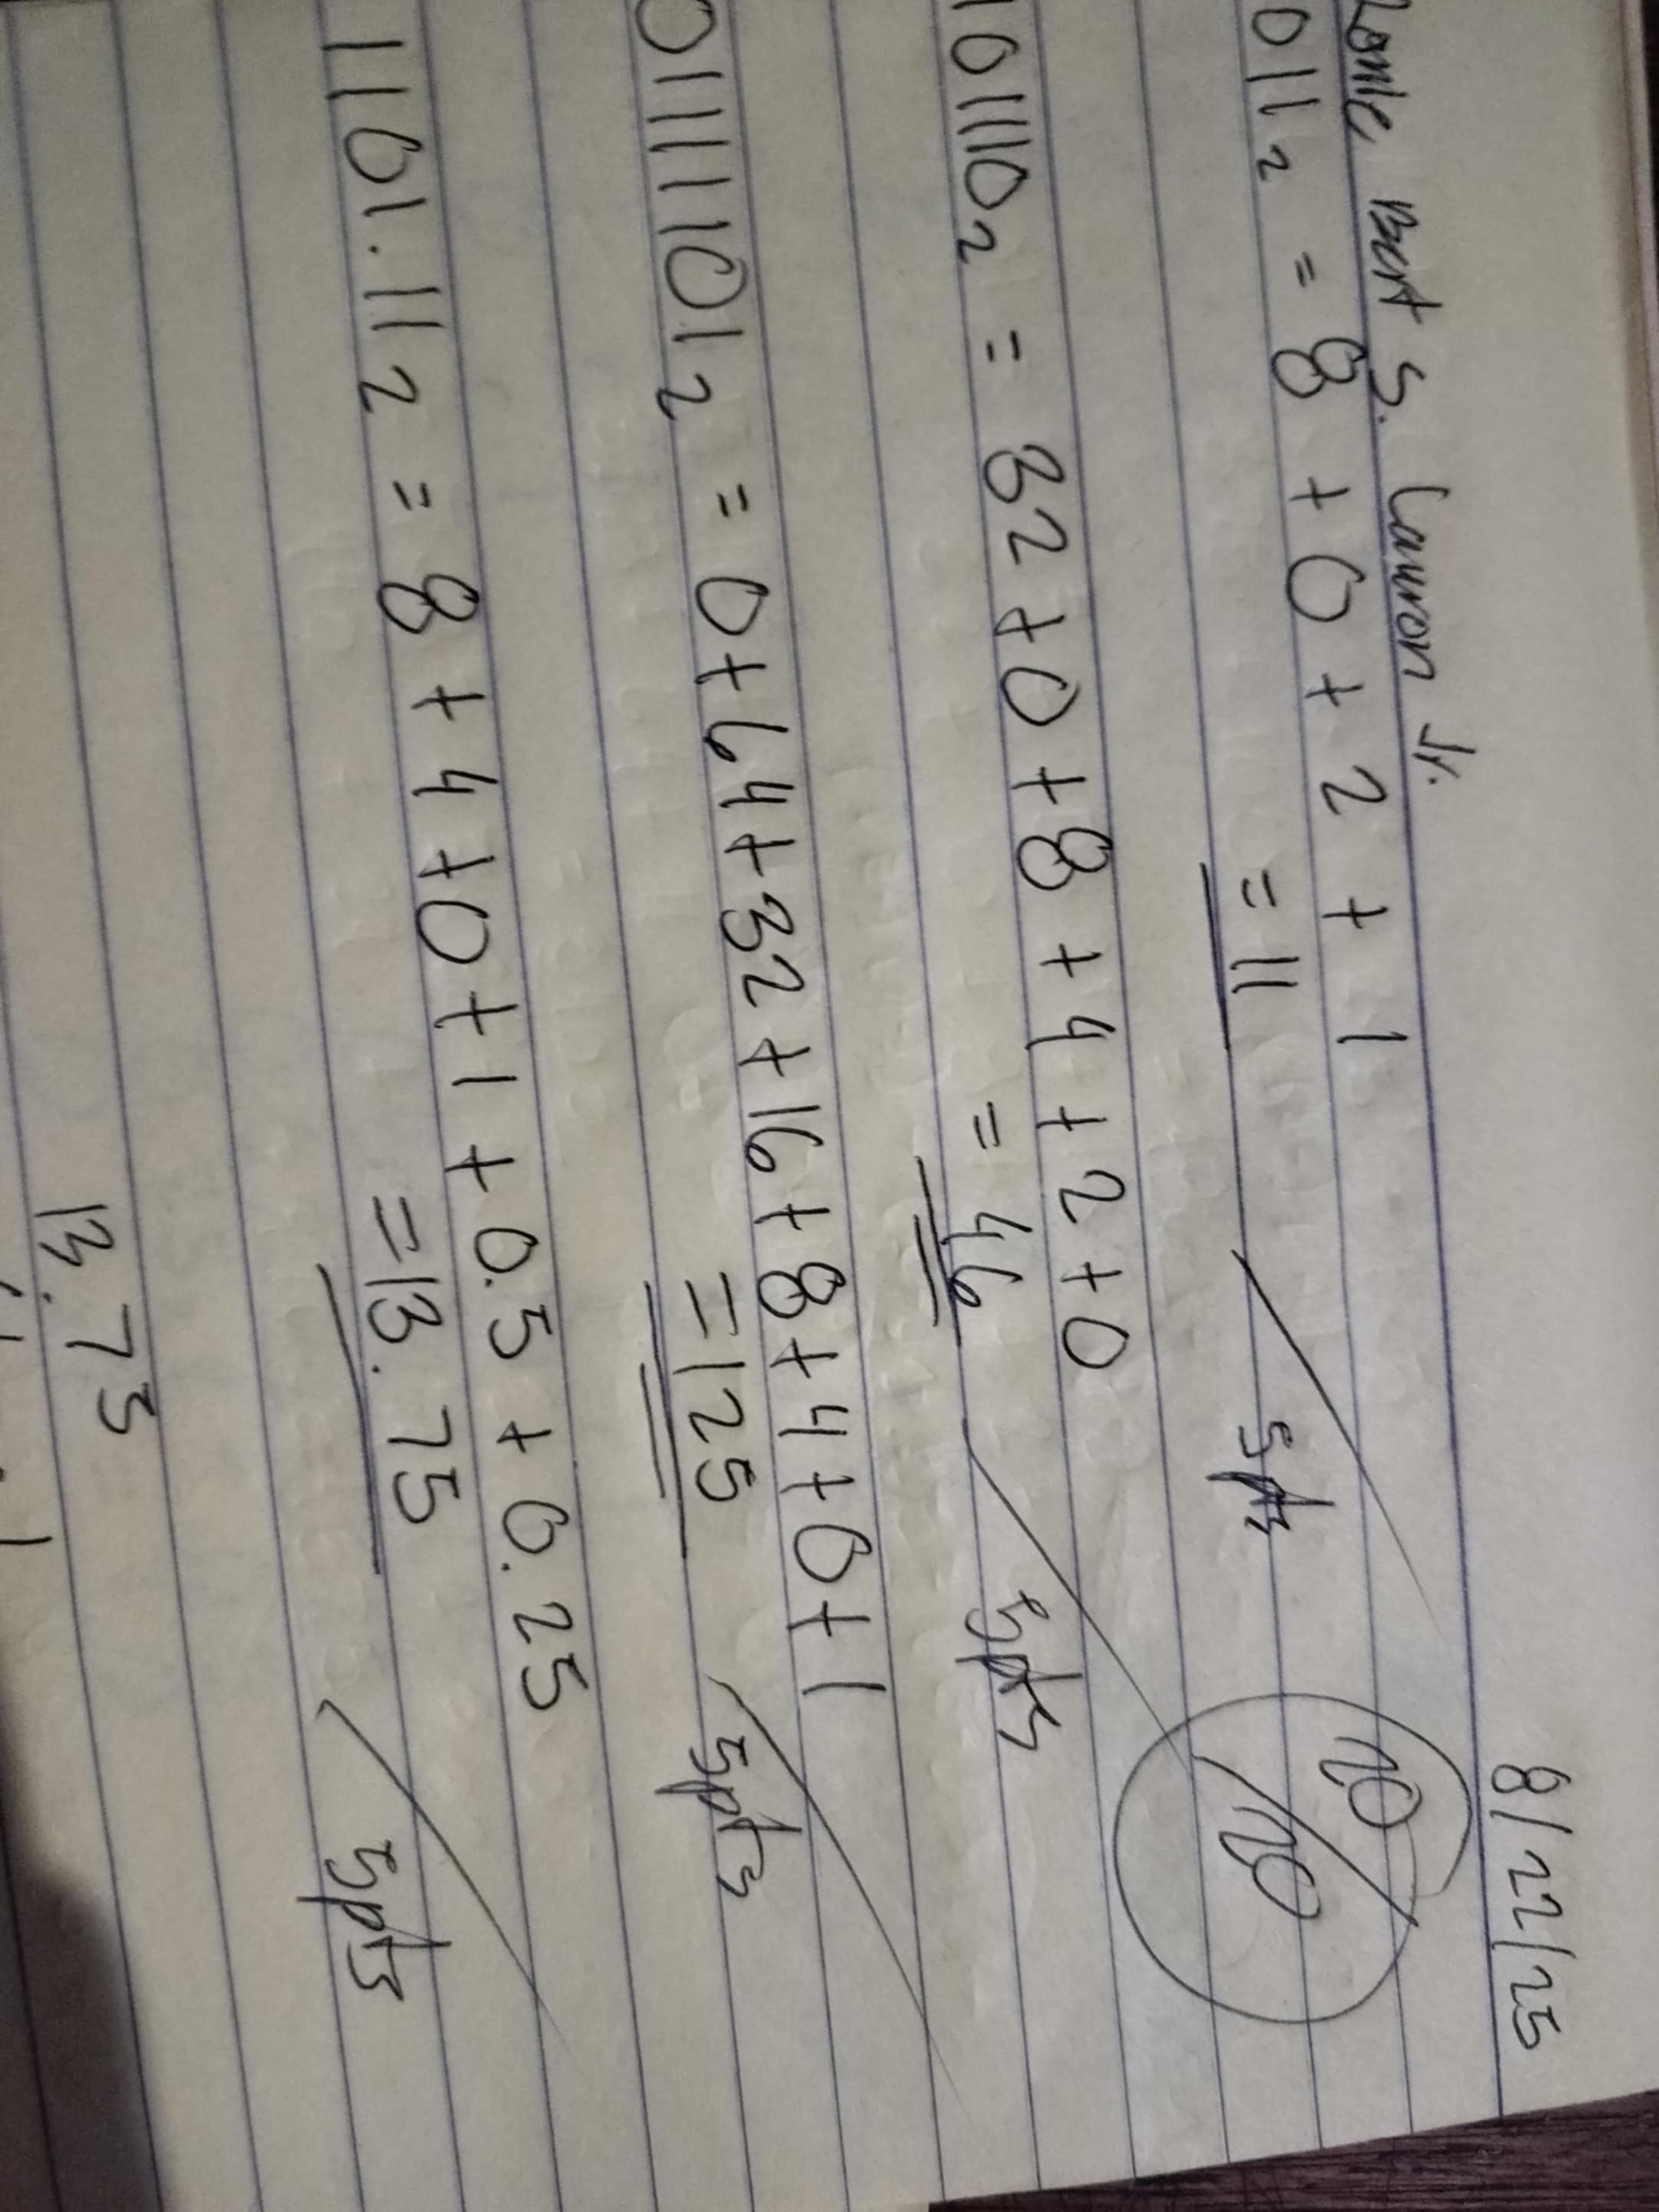 8/22/25
Bert S. Lauron Jr.
011₂ = 8 + 0 + 2 + 1
= 11 5pts
20/20
101110₂ = 32 + 0 + 8 + 4 + 2 + 0
= 46 5pts
01111101₂ = 0 + 64 + 32 + 16 + 8 + 4 + 0 + 1
= 125 5pts
1101.11₂ = 8 + 4 + 0 + 1 + 0.5 + 0.25
= 13.75 5pts
13.75